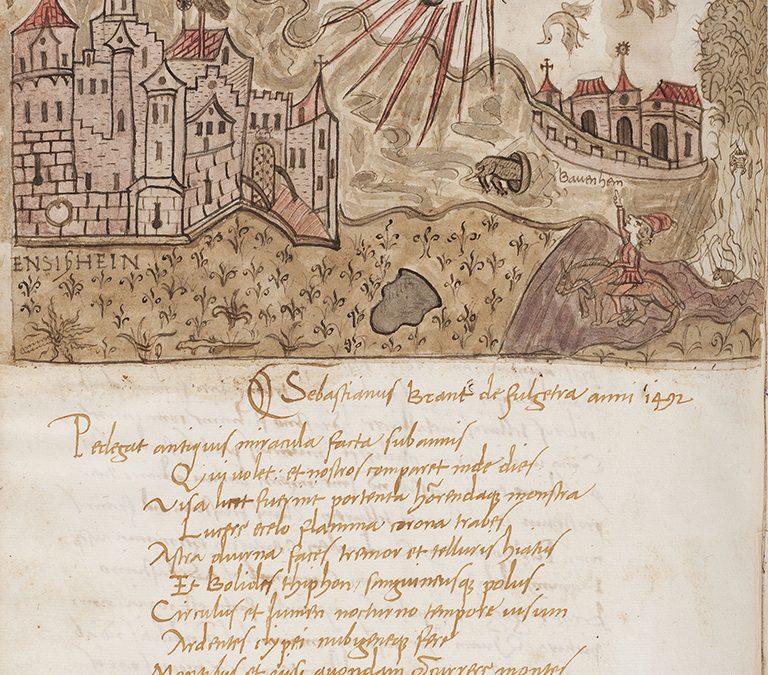 ENSISHEIN
Bauenhein
Sebastianus Brant de fulgetra anni 1492
Pedegat antiquis miracula facta sub annis
Qui volet: et nostros comparet inde dies
Visa licet fuerint portenta horrendaque monstra
Lucere e celo flamma corona trabes
Astra diurna faces tremor et telluris hiatus
Et Bolides thiphon, sanguineusque polus
Circulus et lumen nocturno tempore visum
Ardentes clypei nubigeneque fere
Montibus et visi quondam concurrere montes